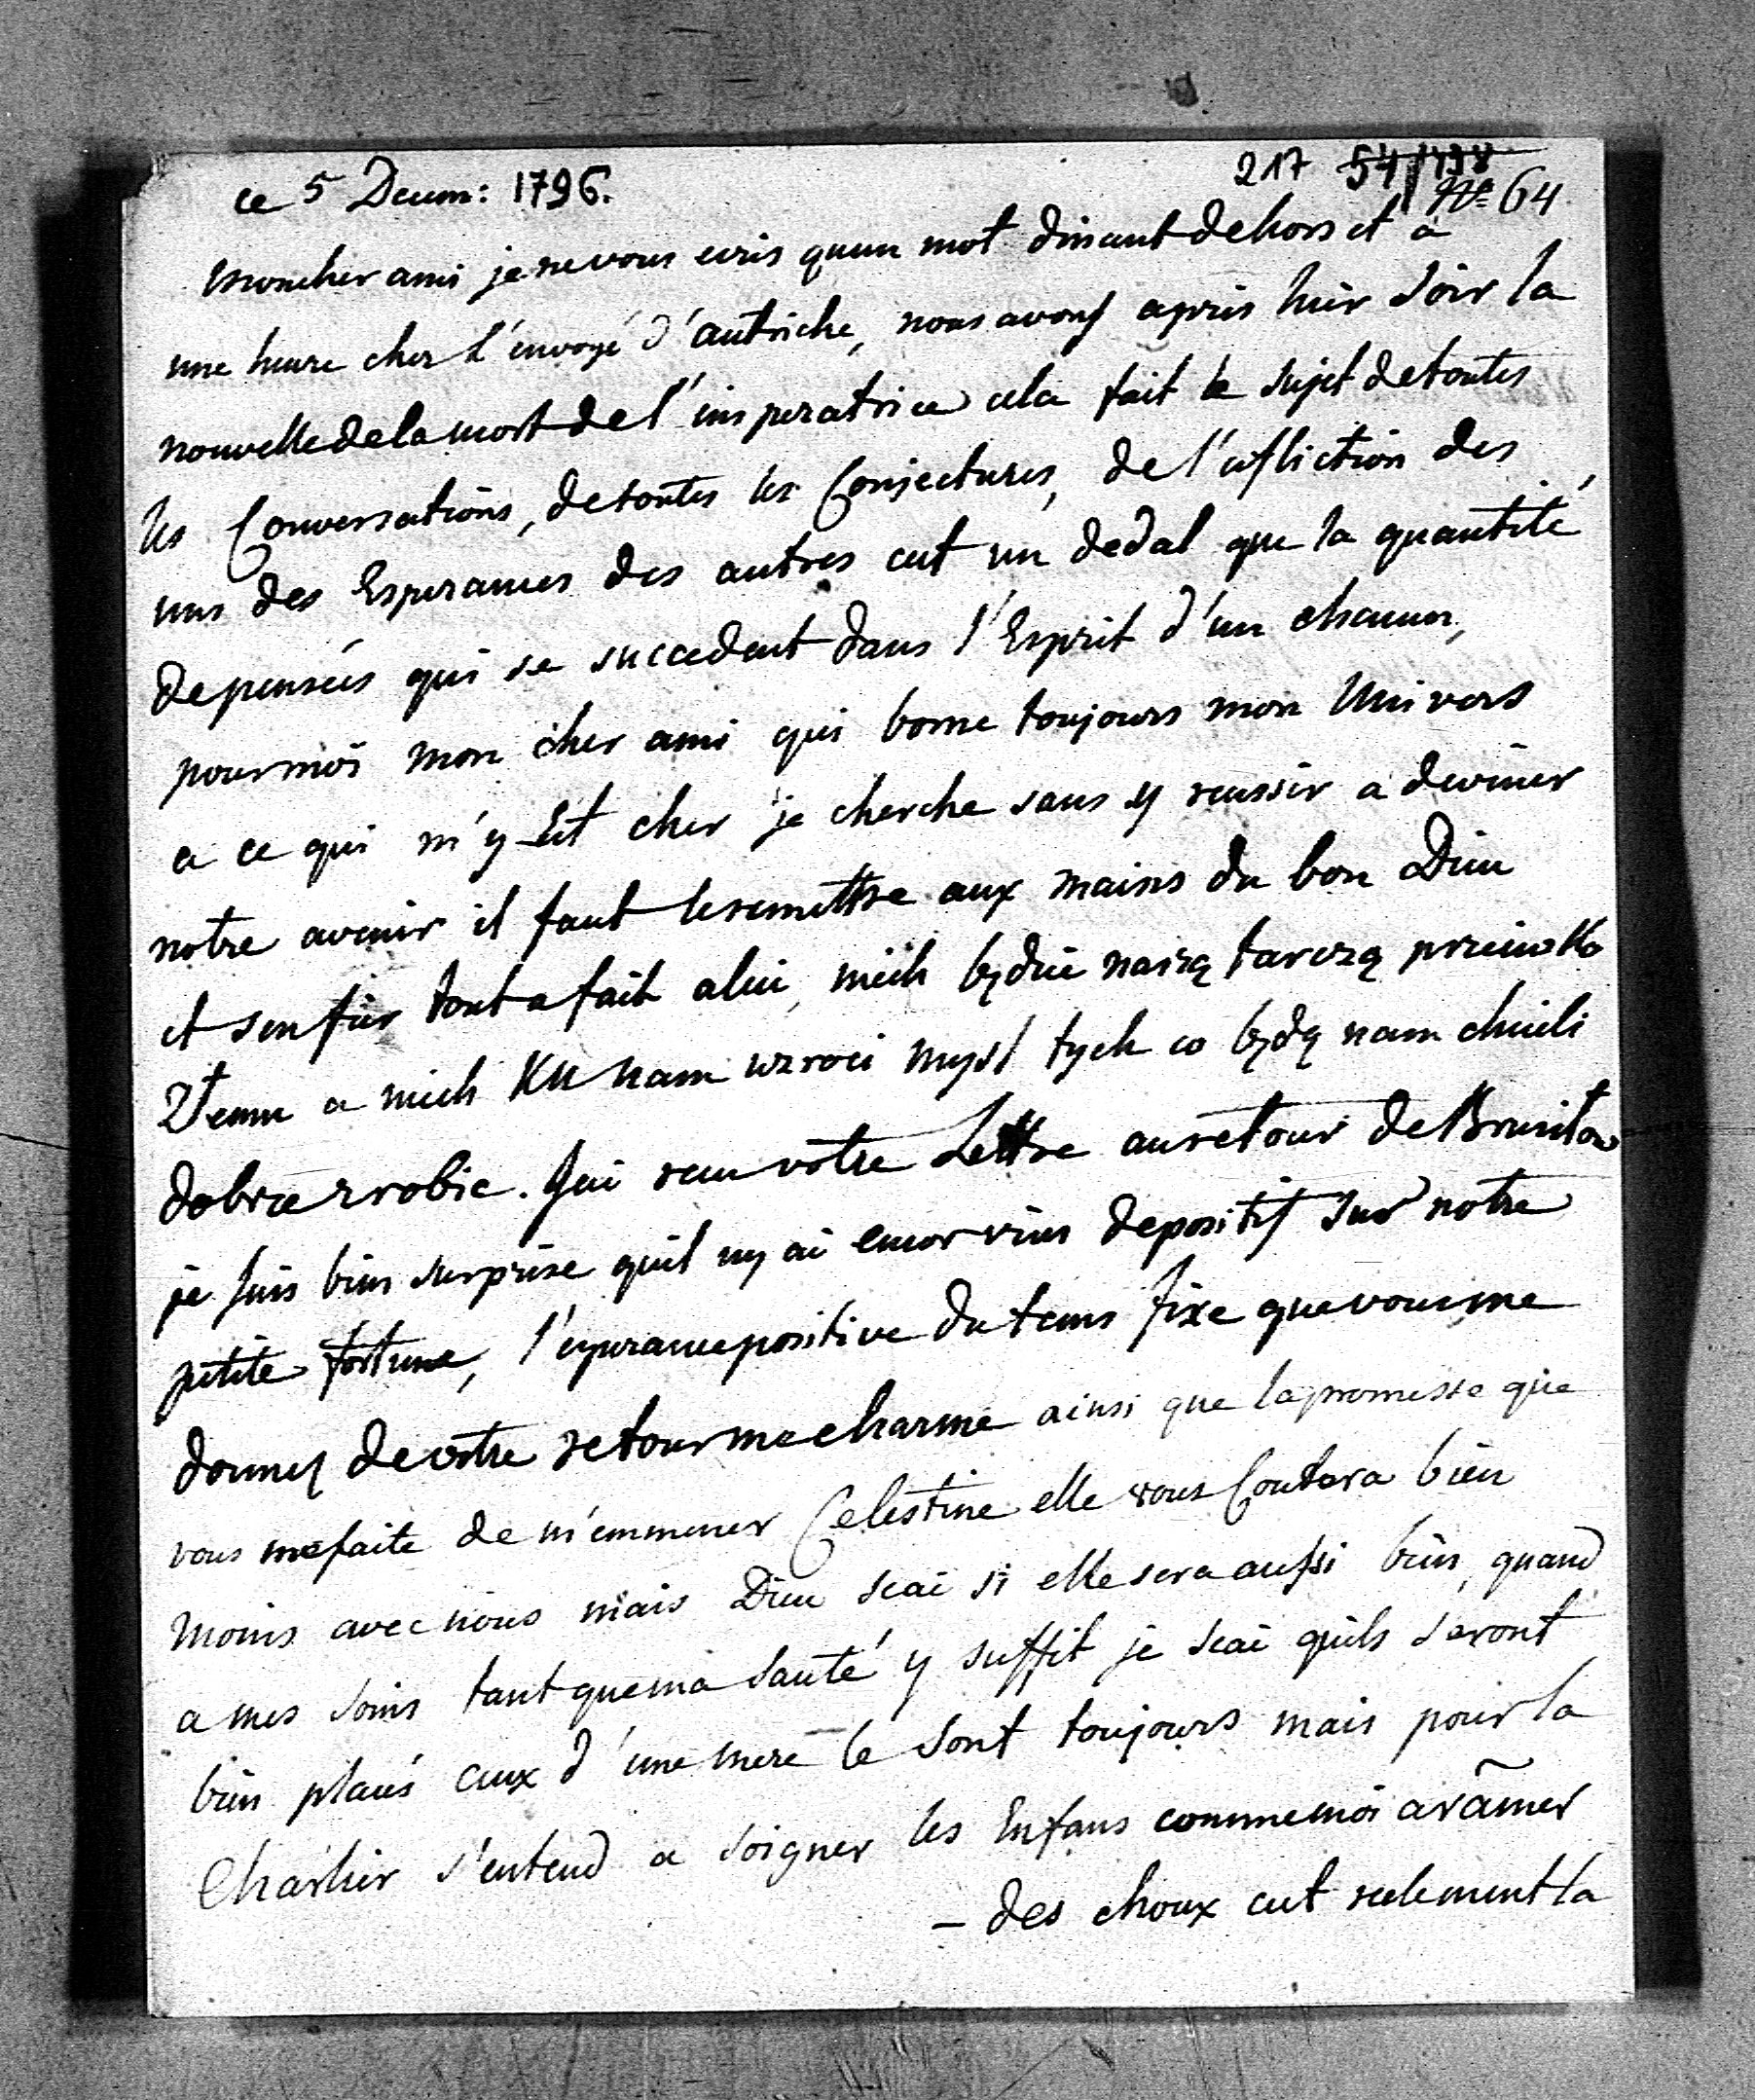 ce 5 Decem: 1796.
217 54/1798
No 64
mon cher ami je ne vous ecris quun mot dinant dehors et à
une heure chez l'envoyé d'autriche, nous avons apris hier soir la
nouvelle de la mort de l'imperatrice cela fait le sujet de toutes
les Conversations, de toutes les Conjectures, de l'afliction des
uns des Esperances des autres cet un dedal que la quantité
de pensées qui se succedent dans l'Esprit d'un chacun,
pour moi mon cher ami qui borne toujours mon Univers
a ce qui m'y Est cher je cherche sans y reussir a deviner
notre avenir il faut le remettre aux mains du bon Dieu
et sen fier tout a fait a lui, niech będzie naszą tarczą przeciwko
złemu a niech ku nam wzroci mysl tych co będą nam chcieli
dobrze zrobic. Jai recu votre Lettre au retour de
je suis bien surprise quil ny ai encor rien de positif sur notre
petite fortune, l'esperance positive du tems fixe que vous me
donnez de votre retour me charme ainsi que la promesse que
vous me faite de m'emmener Celestine elle vous Coutera bien
moins avec nous mais Dieu scai si elle sera aussi bien, quand
a mes soins tant que ma santé y suffit je scai quils seront
bien placés ceux d'une mere le sont toujours mais pour la
Charlier s'entend a soigner les Enfans comme moi a ramer
- des choux cet seulement la